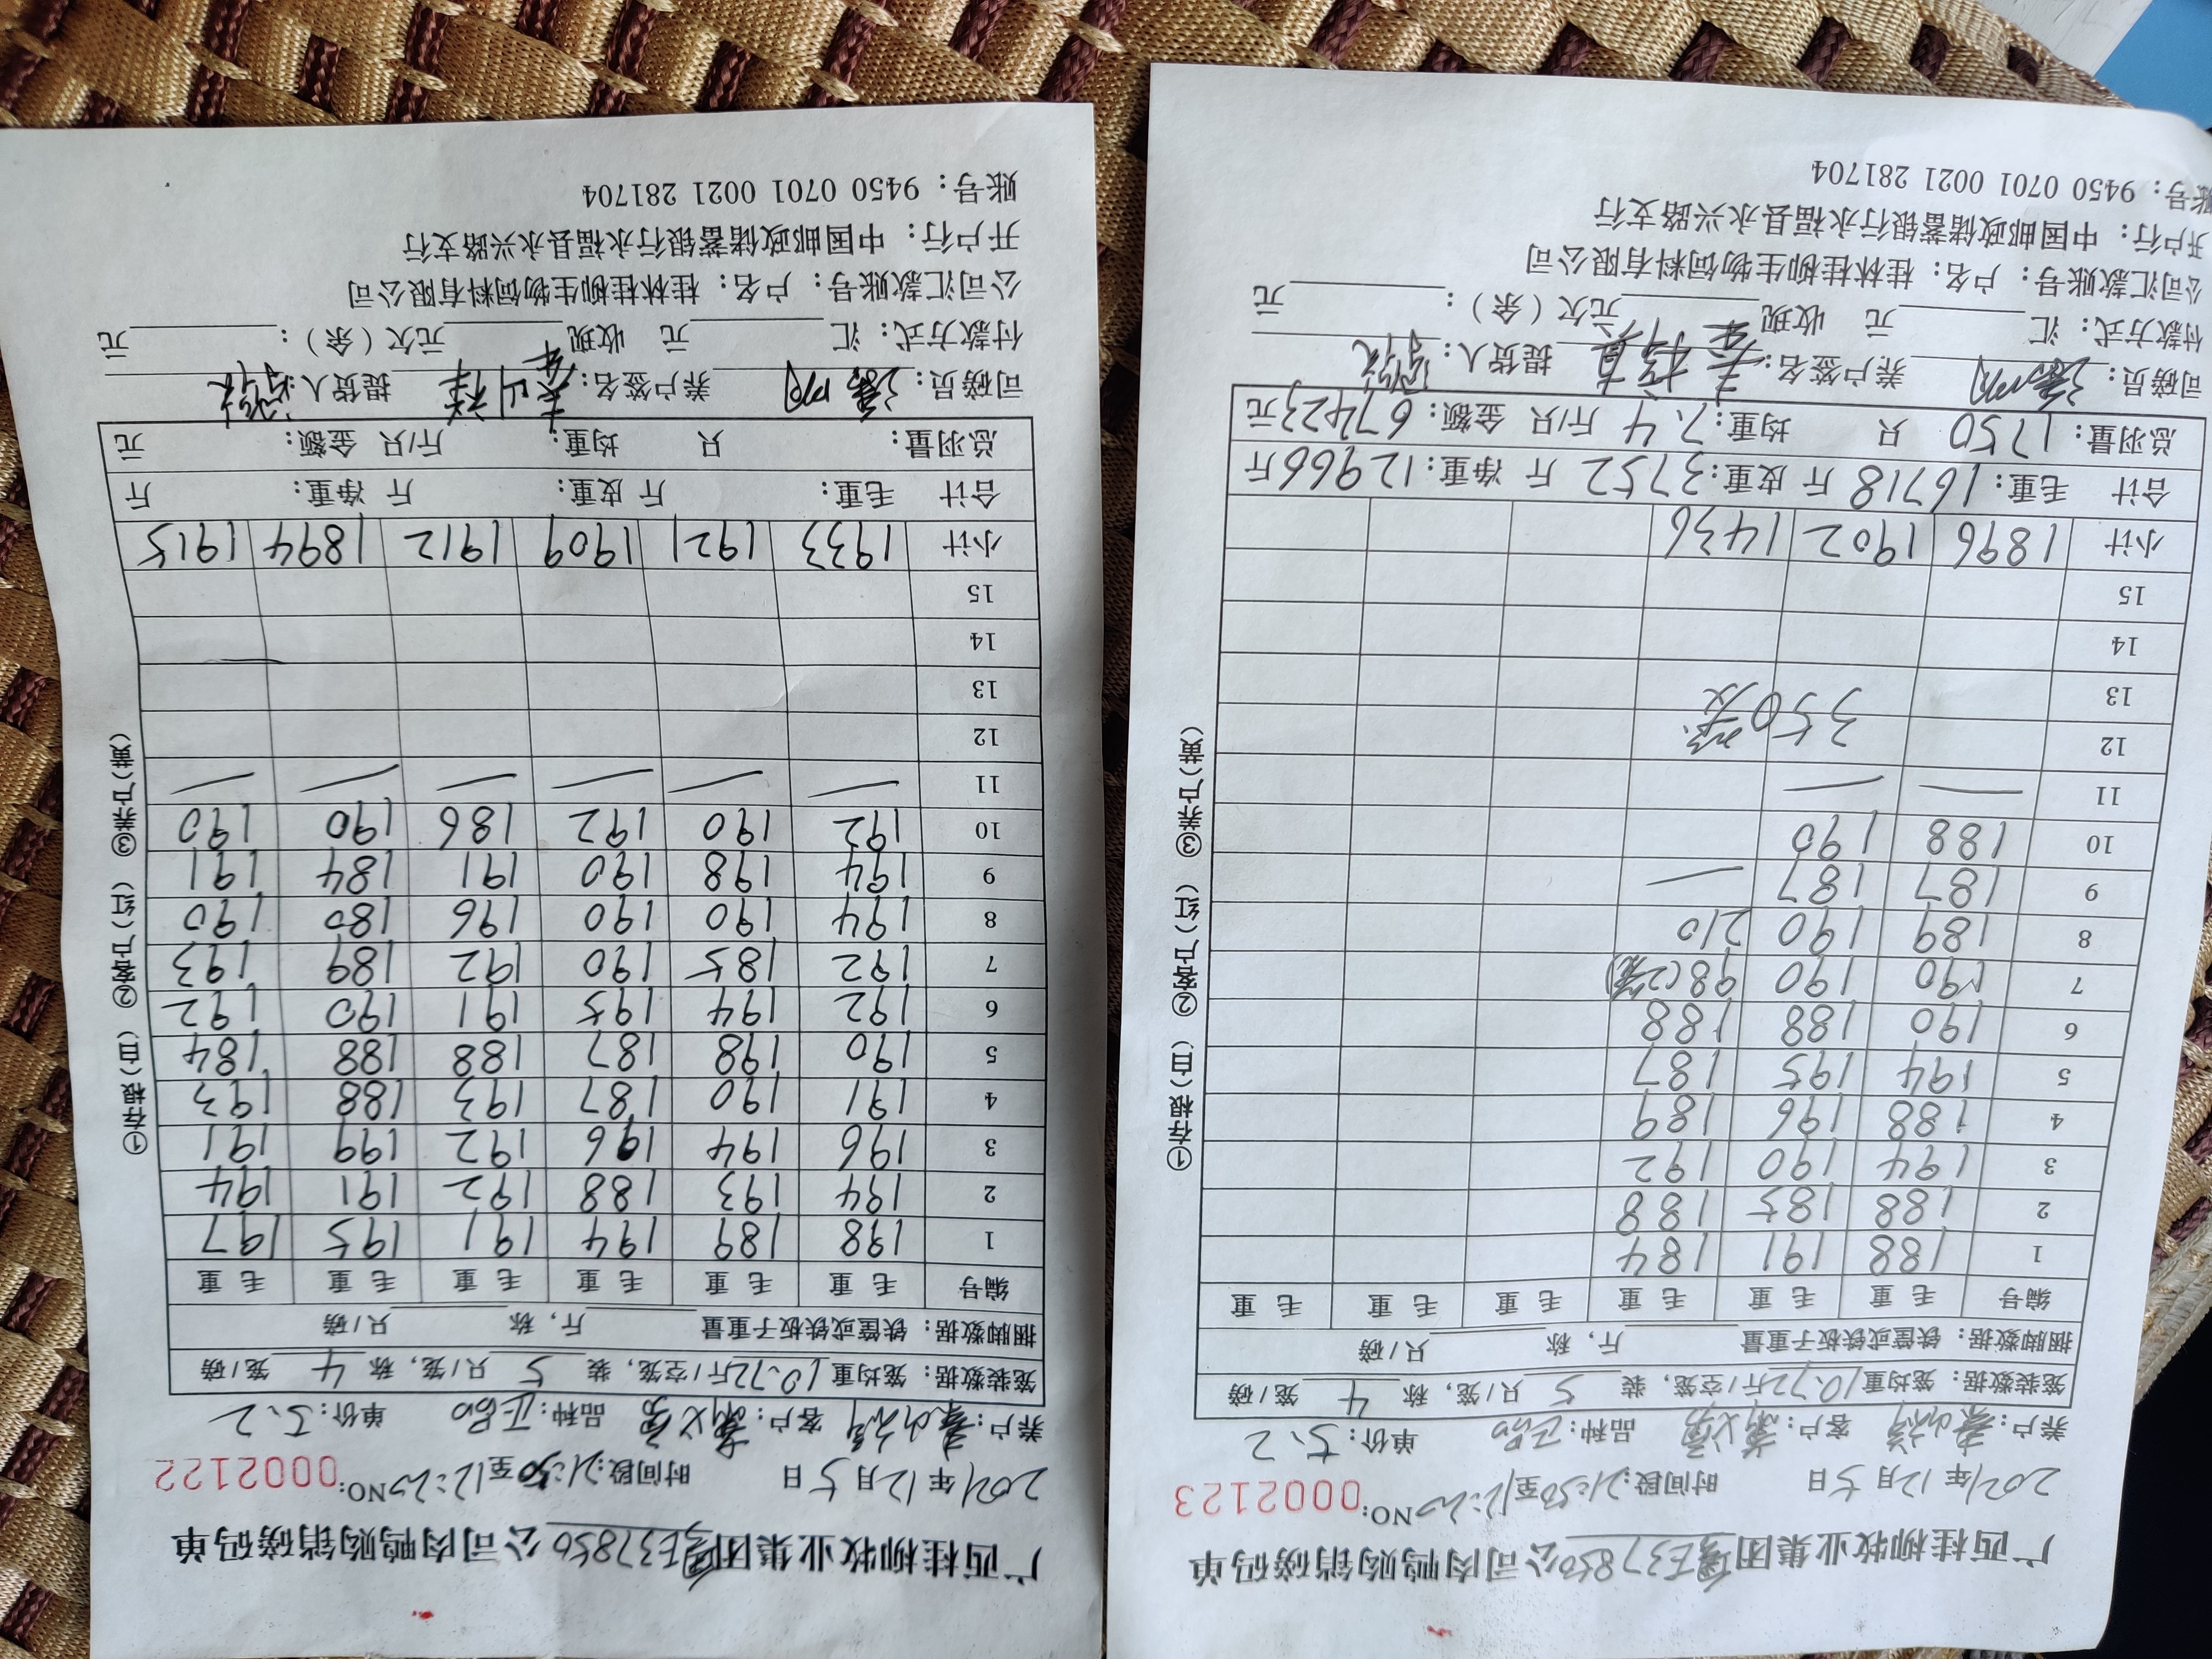 广西桂柳牧业集团E37850公司肉鸭购销磅码单
2021年12月5日 时间段:21:50至12:20 NO:0002122
养户: 客户: 品种: 单价:5.2
笼装数据:笼均重10.72斤/空笼,装 5 只/笼,称 4 笼/磅
捆脚数据:铁筐或铁板子重量 斤,称 只/磅
编号 毛重 毛重 毛重 毛重 毛重 毛重
1 198 189 194 191 195 197
2 194 193 188 192 191 194
3 196 194 196 192 199 191
4 191 190 187 193 188 193
5 190 198 187 188 188 184
6 192 194 195 191 190 192
7 192 185 190 192 189 193
8 194 190 190 196 180 190
9 194 198 190 191 184 191
10 192 190 192 186 190 190
11
12
13
14
15
小计 1933 1921 1909 1912 1894 1915
合计 毛重: 斤 皮重: 斤 净重: 斤
总羽量: 只 均重: 斤/只 金额: 元
司磅员: 养户签名: 提货人:
付款方式:汇 元 收现 元欠(余): 元
公司汇款账号:户名:桂林桂柳生物饲料有限公司
开户行:中国邮政储蓄银行永福县永兴路支行
账号:9450 0701 0021 281704
①存根(白) ②客户(红) ③养户(黄)
广西桂柳牧业集团E37850公司肉鸭购销磅码单
2021年12月5日 时间段:21:50至12:20 NO:0002123
养户: 客户: 品种: 单价:5.2
笼装数据:笼均重10.72斤/空笼,装 5 只/笼,称 4 笼/磅
捆脚数据:铁筐或铁板子重量 斤,称 只/磅
编号 毛重 毛重 毛重 毛重 毛重 毛重
1 188 191 184
2 188 185 188
3 194 190 192
4 188 196 189
5 194 195 187
6 190 188 188
7 190 190 98(2笼)
8 189 190 210
9 187 187
10 188 190
11
12 350笼
13
14
15
小计 1896 1902 1436
合计 毛重:16718斤 皮重:3752斤 净重:12966斤
总羽量:1750只 均重:7.4斤/只 金额:67423元
司磅员: 养户签名: 提货人:
付款方式:汇 元 收现 元欠(余): 元
公司汇款账号:户名:桂林桂柳生物饲料有限公司
开户行:中国邮政储蓄银行永福县永兴路支行
账号:9450 0701 0021 281704
①存根(白) ②客户(红) ③养户(黄)